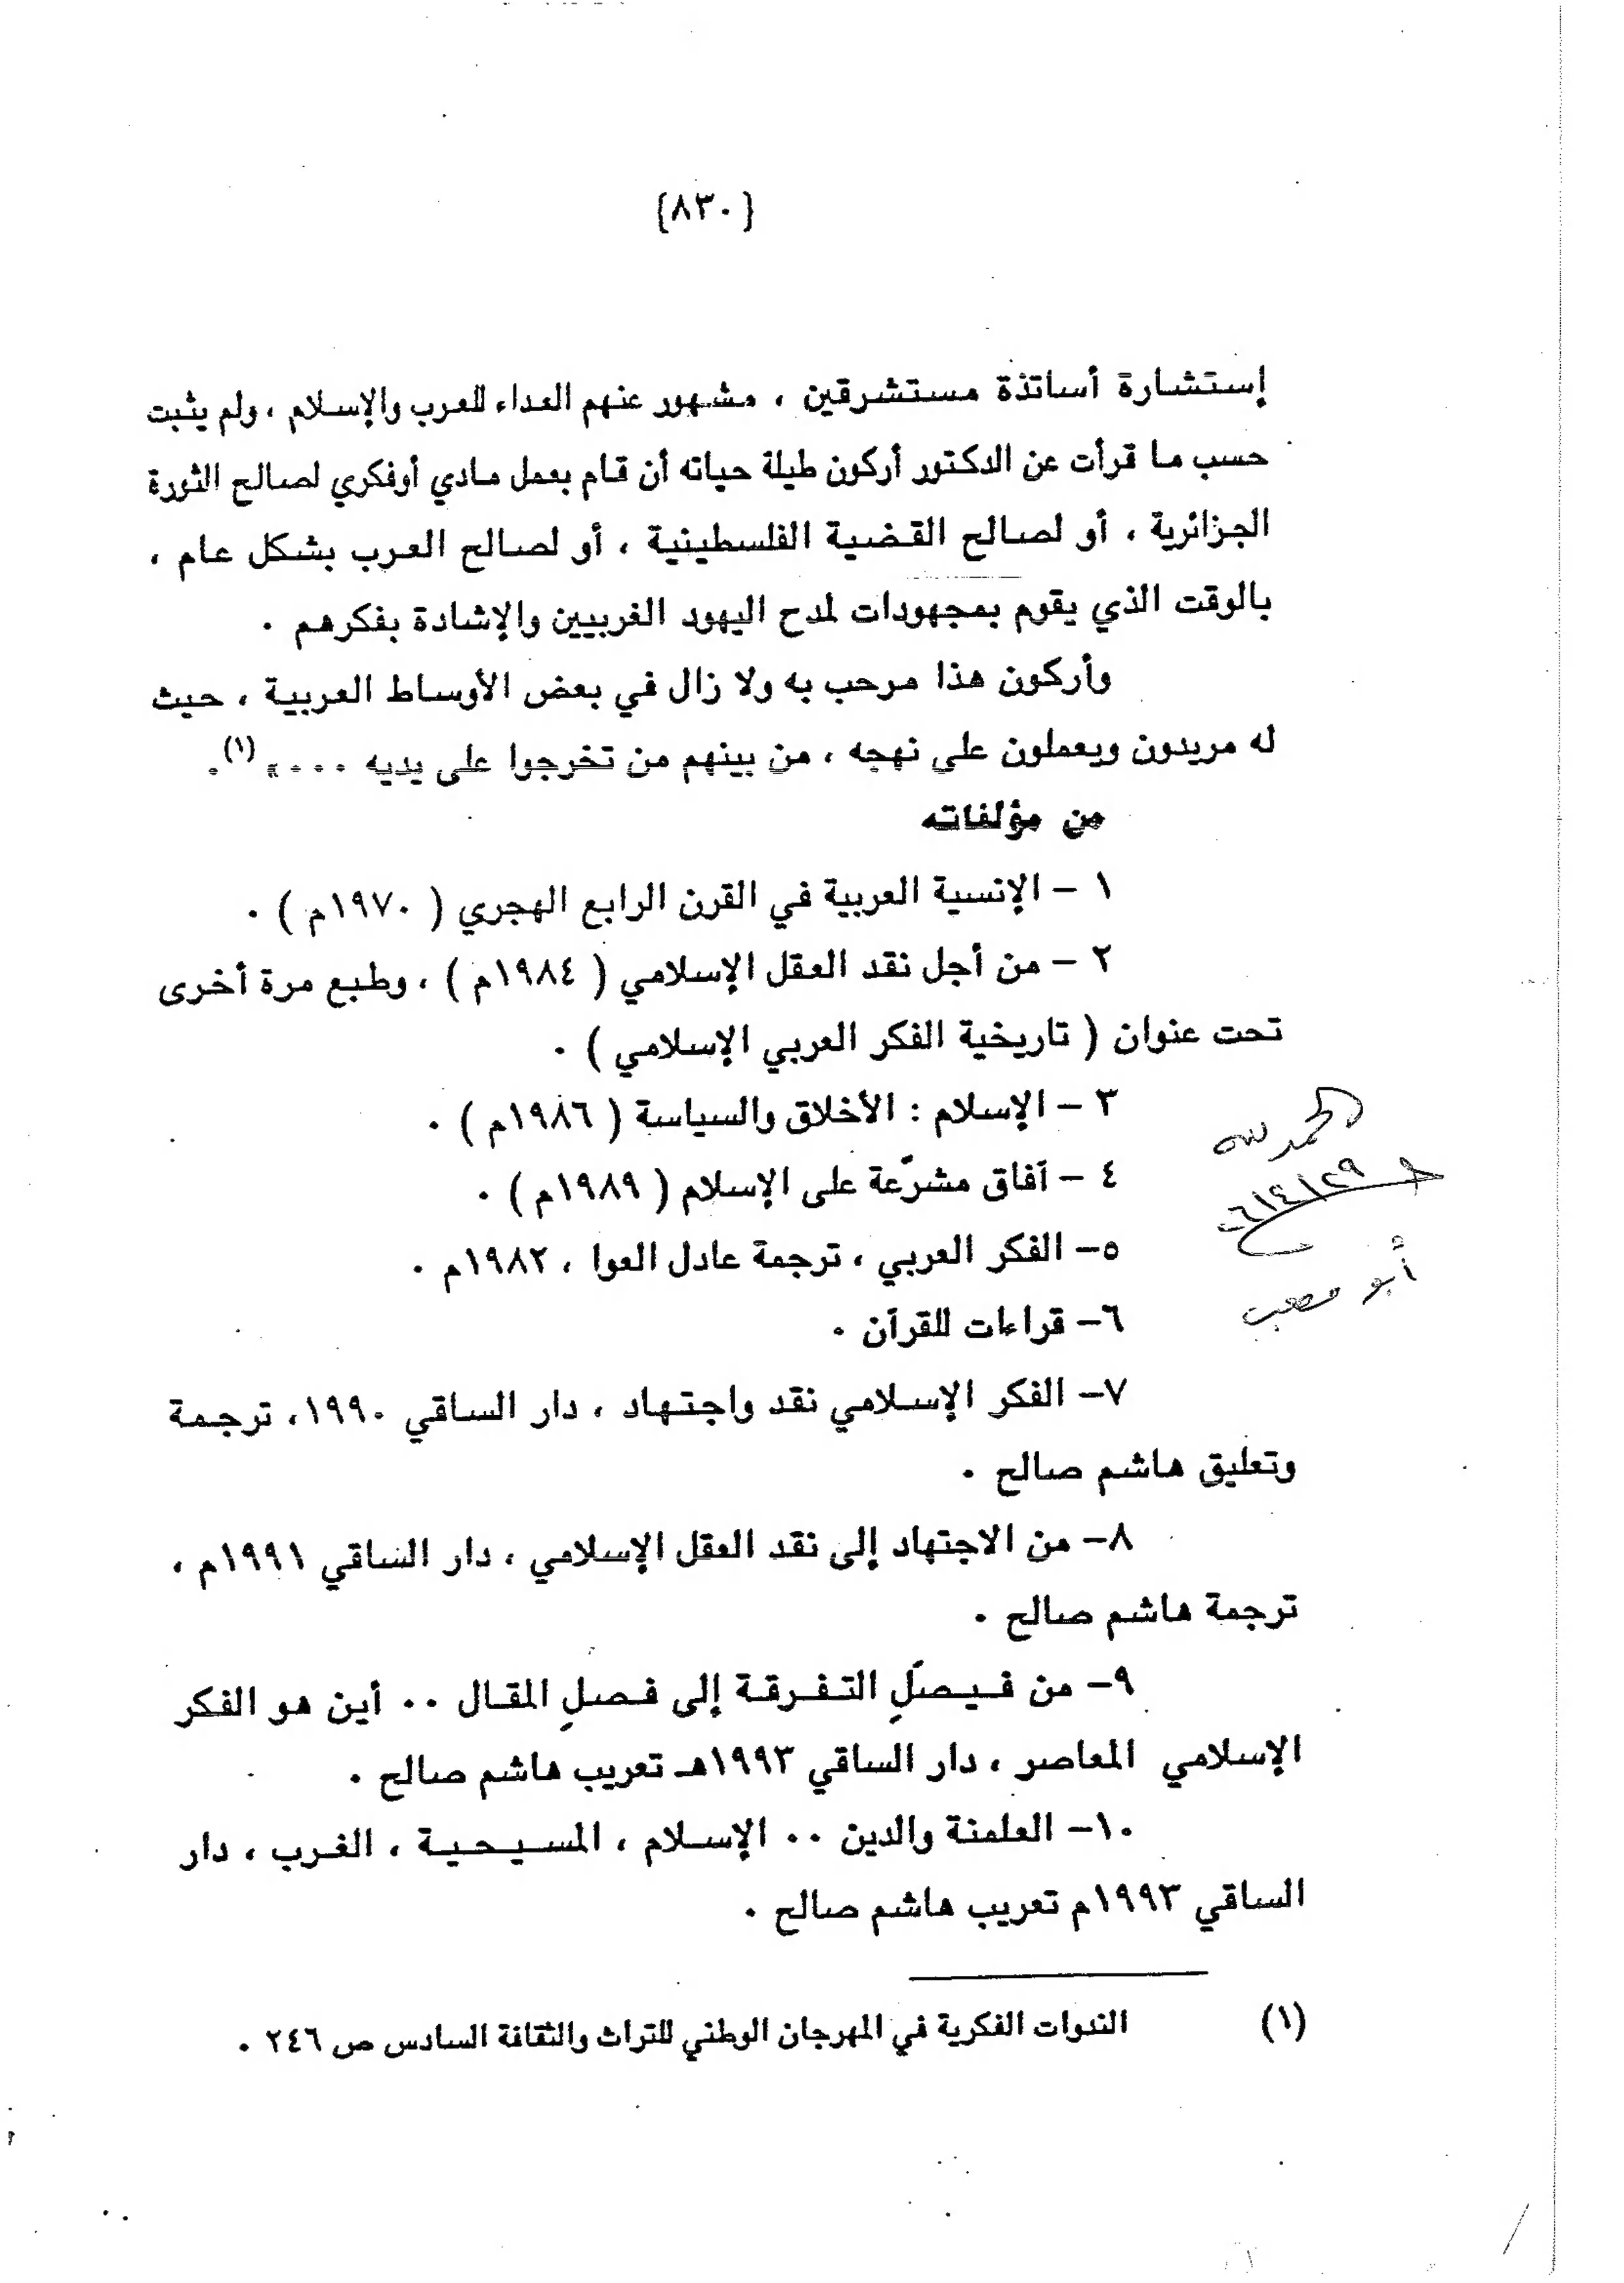 {٨٣٠}
إستشارة أساتذة مستشرقين ، مشهور عنهم العداء للعرب والإسلام ، ولم يثبت
حسب ما قرأت عن الدكتور أركون طيلة حياته أن قام بعمل مادي أوفكري لصالح الثورة
الجزائرية ، أو لصالح القضية الفلسطينية ، أو لصالح العرب بشكل عام ،
بالوقت الذي يقوم بمجهودات لمدح اليهود الغربيين والإشادة بفكرهم .
وأركون هذا مرحب به ولا زال في بعض الأوساط العربية ، حيث
له مريدون ويعملون على نهجه ، من بينهم من تخرجوا على يديه ...» (١).
من مؤلفاته
١ - الإنسية العربية في القرن الرابع الهجري ( ١٩٧٠م ) .
٢ - من أجل نقد العقل الإسلامي ( ١٩٨٤م ) ، وطبع مرة أخرى
تحت عنوان ( تاريخية الفكر العربي الإسلامي ) .
٣ - الإسلام : الأخلاق والسياسة ( ١٩٨٦م ) .
٤ - آفاق مشرّعة على الإسلام ( ١٩٨٩م ) .
٥- الفكر العربي ، ترجمة عادل العوا ، ١٩٨٢م .
٦- قراءات للقرآن .
٧- الفكر الإسلامي نقد واجتهاد ، دار الساقي ١٩٩٠، ترجمة
وتعليق هاشم صالح .
٨- من الاجتهاد إلى نقد العقل الإسلامي ، دار الساقي ١٩٩١م ،
ترجمة هاشم صالح .
٩- من فيصَلِ التفرقة إلى فصلِ المقال .. أين هو الفكر
الإسلامي المعاصر ، دار الساقي ١٩٩٣هـ تعريب هاشم صالح .
١٠- العلمنة والدين .. الإسلام ، المسيحية ، الغرب ، دار
الساقي ١٩٩٣م تعريب هاشم صالح .
(١) الندوات الفكرية في المهرجان الوطني للتراث والثقافة السادس ص ٢٤٦ .
الحمد لله
أبو مصعب